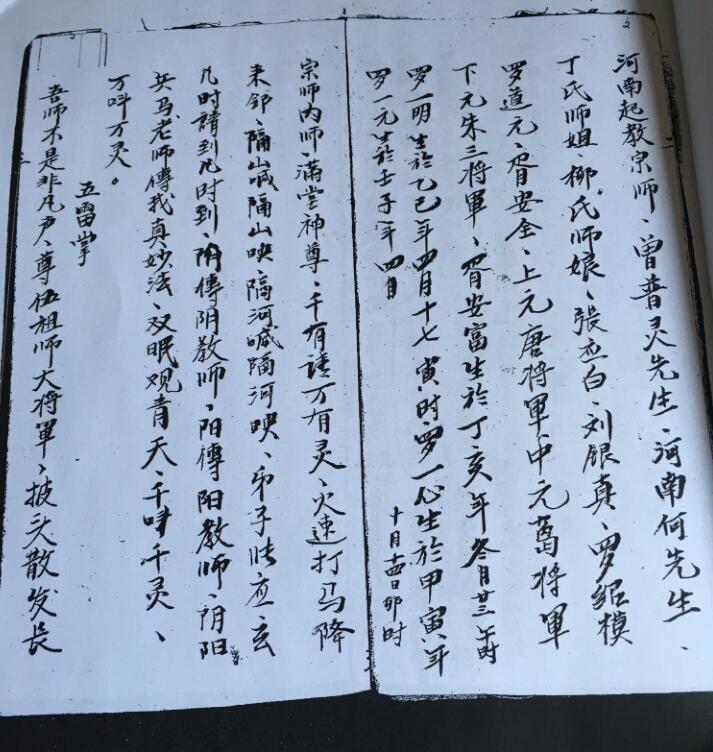 河南起教宗师、曾普灵先生、河南何先生、
丁氏师姐、柳氏师娘、張应白、刘银真、罗绍模
罗道元、胥安全、上元唐将軍、中元葛将軍
下元朱三将軍、胥安富生於丁亥年冬月廿三午时
罗一明生於乙巳年四月十七寅时、罗一心生於甲寅、年十月十四日卯时
罗一元生於壬子年四月
宗师内师、满堂神尊、千有請万有灵、火速打马降
来邻、隔山喊隔山映、隔河喊隔河映、弟子
几时請到几时到、阴傳阴教师、阳傳阳教师、阴阳
兵马老师傳我真妙法、双眼观青天、千叫千灵、
万叫万灵。
五雷掌
吾师不是非凡声、尊伍祖师大将軍、披头散发长